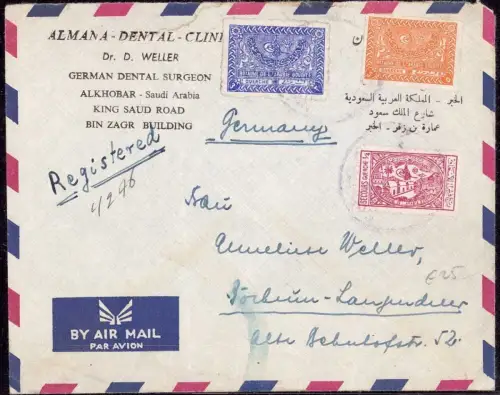 ALMANA - DENTAL - CLINI
Dr. D. WELLER
GERMAN DENTAL SURGEON
ALKHOBAR - Saudi Arabia
KING SAUD ROAD
BIN ZAGR BUILDING
الخبر - المملكة العربية السعودية
شارع الملك سعود
عمارة بن زقر - الخبر
Germany
Registered
4246
Frau
Anneliese Weller,
Bochum-Langendreer
Alte Bahnhofstr. 52.
€25
BY AIR MAIL
PAR AVION